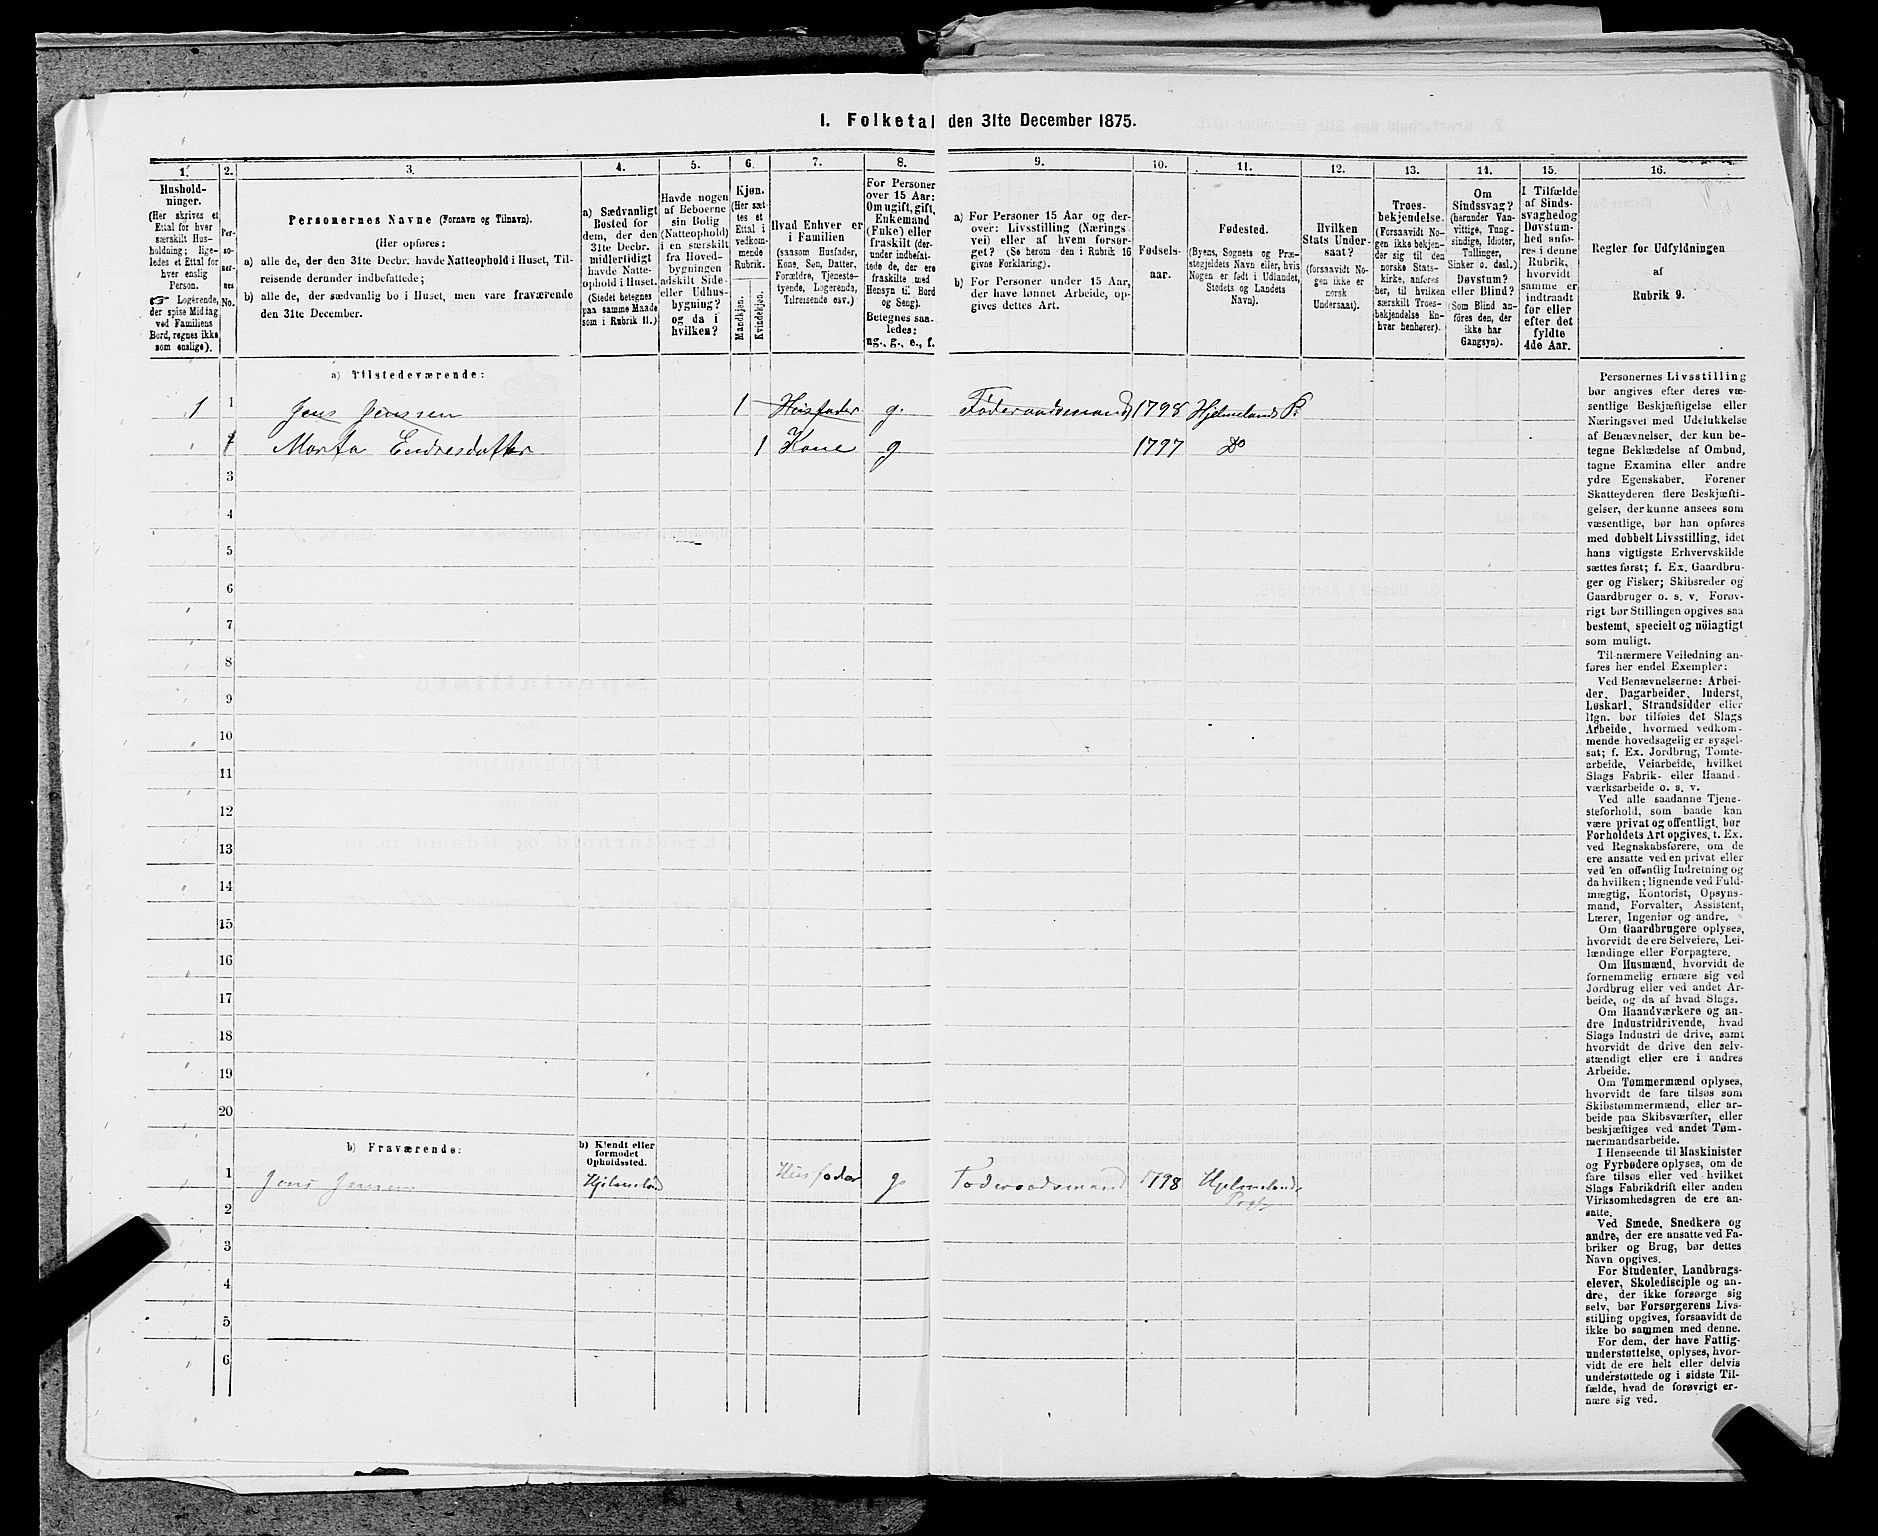 1. Folketal den 31te December 1875.
1.
2.
3.
4.
5.
6.
7.
8.
9.
10.
11.
12.
13.
14.
15.
16.
Hushold-
ninger.
(Her skrives et
Ettal for hver
særskilt Hus-
holdning; lige-
ledes et Ettal for
hver enslig
Person.
☞ Logerende,
der spise Middag
ved Familiens
Bord, regnes ikke
som enslige).
Per-
so-
ner-
nes
No.
Personernes Navne (Fornavn og Tilnavn).
(Her opføres:
a) alle de, der den 31te Decbr. havde Natteophold i Huset, Til-
reisende derunder indbefattede;
b) alle de, der sædvanlig bo i Huset, men vare fraværende
den 31te December.
a) Sædvanligt
Bosted for
dem, der den
31te Decbr.
midlertidigt
havde Natte-
ophold i Huset.
(Stedet betegnes
paa samme Maade
som i Rubrik 11.)
Havde nogen
af Beboerne
sin Bolig
(Natteophold)
i en særskilt
fra Hoved-
bygningen
adskilt Side-
eller Udhus-
bygning?
og da i
hvilken?
Kjøn.
(Her sæt-
tes et
Ettal i
vedkom-
mende
Rubrik.
Mandkjøn.
Kvindekjøn.
Hvad Enhver er
i Familien
(saasom Husfader,
Kone, Søn, Datter,
Forældre, Tjeneste-
tyende, Logerende,
Tilreisende osv.)
For Personer
over 15 Aar:
Om ugift, gift,
Enkemand
(Enke) eller
fraskilt (der-
under indbefat-
tede de, der ere
fraskilte med
Hensyn til Bord
og Seng).
Betegnes saa-
ledes:
ug., g., e., f.
a) For Personer 15 Aar og der-
over: Livsstilling (Nærings-
vei) eller af hvem forsør-
get? (Se herom den i Rubrik 16
givne Forklaring).
b) For Personer under 15 Aar,
der have lønnet Arbeide, op-
gives dettes Art.
Fødsels-
aar.
Fødested.
(Byens, Sognets og Præ-
stegjeldets Navn eller, hvis
Nogen er født i Udlandet,
Stedets og Landets
Navn).
Hvilken
Stats Under-
saat?
(forsaavidt No-
gen ikke er
norsk
Undersaat).
Troes-
bekjendelse.
(Forsaavidt No-
gen ikke bekjen-
der sig til den
norske Stats-
kirke, anføres
her, til hvilken
særskilt Troes-
bekjendelse En-
hver henhører).
Om
Sindssvag?
(herunder Van-
vittige, Tung-
sindige, Idioter,
Tullinger,
Sinker o. desl.)
Døvstum?
eller Blind?
(Som Blind an-
føres den, der
ikke har
Gangsyn).
I Tilfælde
af Sinds-
svaghed og
Døvstum-
hed anfø-
res i denne
Rubrik,
hvorvidt
samme er
indtraadt
før eller
efter det
fyldte
4de Aar.
Regler for Udfyldningen
af
Rubrik 9.
a) Tilstedeværende:
1 1 Jens Jenssen 1 Husfader g. Føderaadsmand 1798 Hjelmelands P.
Marta Endresdatter 1 Kone g 1797 Do
3
4
5
6
7
8
9
10
11
12
13
14
15
16
17
18
19
20
b) Fraværende:
b) Kjendt eller
formodet
Opholdssted.
1 Jens Jensen Hjelmeland Husfader g. Føderaadsmand 1798 Hjelmelands
Prgj
2
3
4
5
6
Personernes Livsstilling
bør angives efter deres væ-
sentlige Beskjæftigelse eller
Næringsvei med Udelukkelse
af Benævnelser, der kun be-
tegne Beklædelse af Ombud,
tagne Examina eller andre
ydre Egenskaber. Forener
Skatteyderen flere Beskjæfti-
gelser, der kunne ansees som
væsentlige, bør han opføres
med dobbelt Livsstilling, idet
hans vigtigste Erhvervskilde
sættes først; f. Ex. Gaardbru-
ger og Fisker; Skibsreder og
Gaardbruger o. s. v. Forøv-
rigt bør Stillingen opgives saa
bestemt, specielt og nöiagtigt
som muligt.
Til nærmere Veiledning an-
føres her endel Exempler:
Ved Benævnelserne: Arbei-
der, Dagarbeider, Inderst,
Løskarl, Strandsidder eller
lign. bør tilføies det Slags
Arbeide, hvormed vedkom-
mende hovedsagelig er syssel-
sat; f. Ex. Jordbrug, Tomte-
arbeide, Veiarbeide, hvilket
Slags Fabrik- eller Haand-
værksarbeide o. s. v.
Ved alle saadanne Tjene-
steforhold, som baade kan
være privat og offentligt, bør
Forholdets Art opgives, t. Ex.
ved Regnskabsførere, om de
ere ansatte ved en privat eller
ved en offentlig Indretning og
da hvilken; lignende ved Fuld-
mægtig, Kontorist, Opsyns-
mand, Forvalter, Assistent,
Lærer, Ingeniør og andre.
Om Gaardbrugere oplyses,
hvorvidt de ere Selveiere, Lei-
lændinge eller Forpagtere.
Om Husmænd, hvorvidt de
fornemmelig ernære sig ved
Jordbrug eller ved andet Ar-
beide, og da af hvad Slags.
Om Haandværkere og an-
dre Industridrivende, hvad
Slags Industri de drive, samt
hvorvidt de drive den selv-
stændigt eller ere i andres
Arbeide.
Om Tømmermænd oplyses,
hvorvidt de fare tilsøs som
Skibstømmermænd, eller ar-
beide paa Skibsværfter, eller
beskjæftiges ved andet Tøm-
mermandsarbeide.
I Henseende til Maskinister
og Fyrbødere oplyses, om de
fare tilsøs eller ved hvilket
Slags Fabrikdrift eller anden
Virksomhedsgren de ere an-
satte.
Ved Smede, Snedkere og
andre, der ere ansatte ved Fa-
briker og Brug, bør dettes
Navn opgives.
For Studenter, Landbrugs-
elever, Skoledisciple og an-
dre, der ikke forsørge sig
selv, bør Forsørgerens Livs-
stilling opgives, forsaavidt de
ikke bo sammen med denne.
For dem, der have Fattig-
understøttelse, oplyses, hvor-
vidt de ere helt eller delvis
understøttede og i sidste Til-
fælde, hvad de forøvrigt er-
nære sig ved.